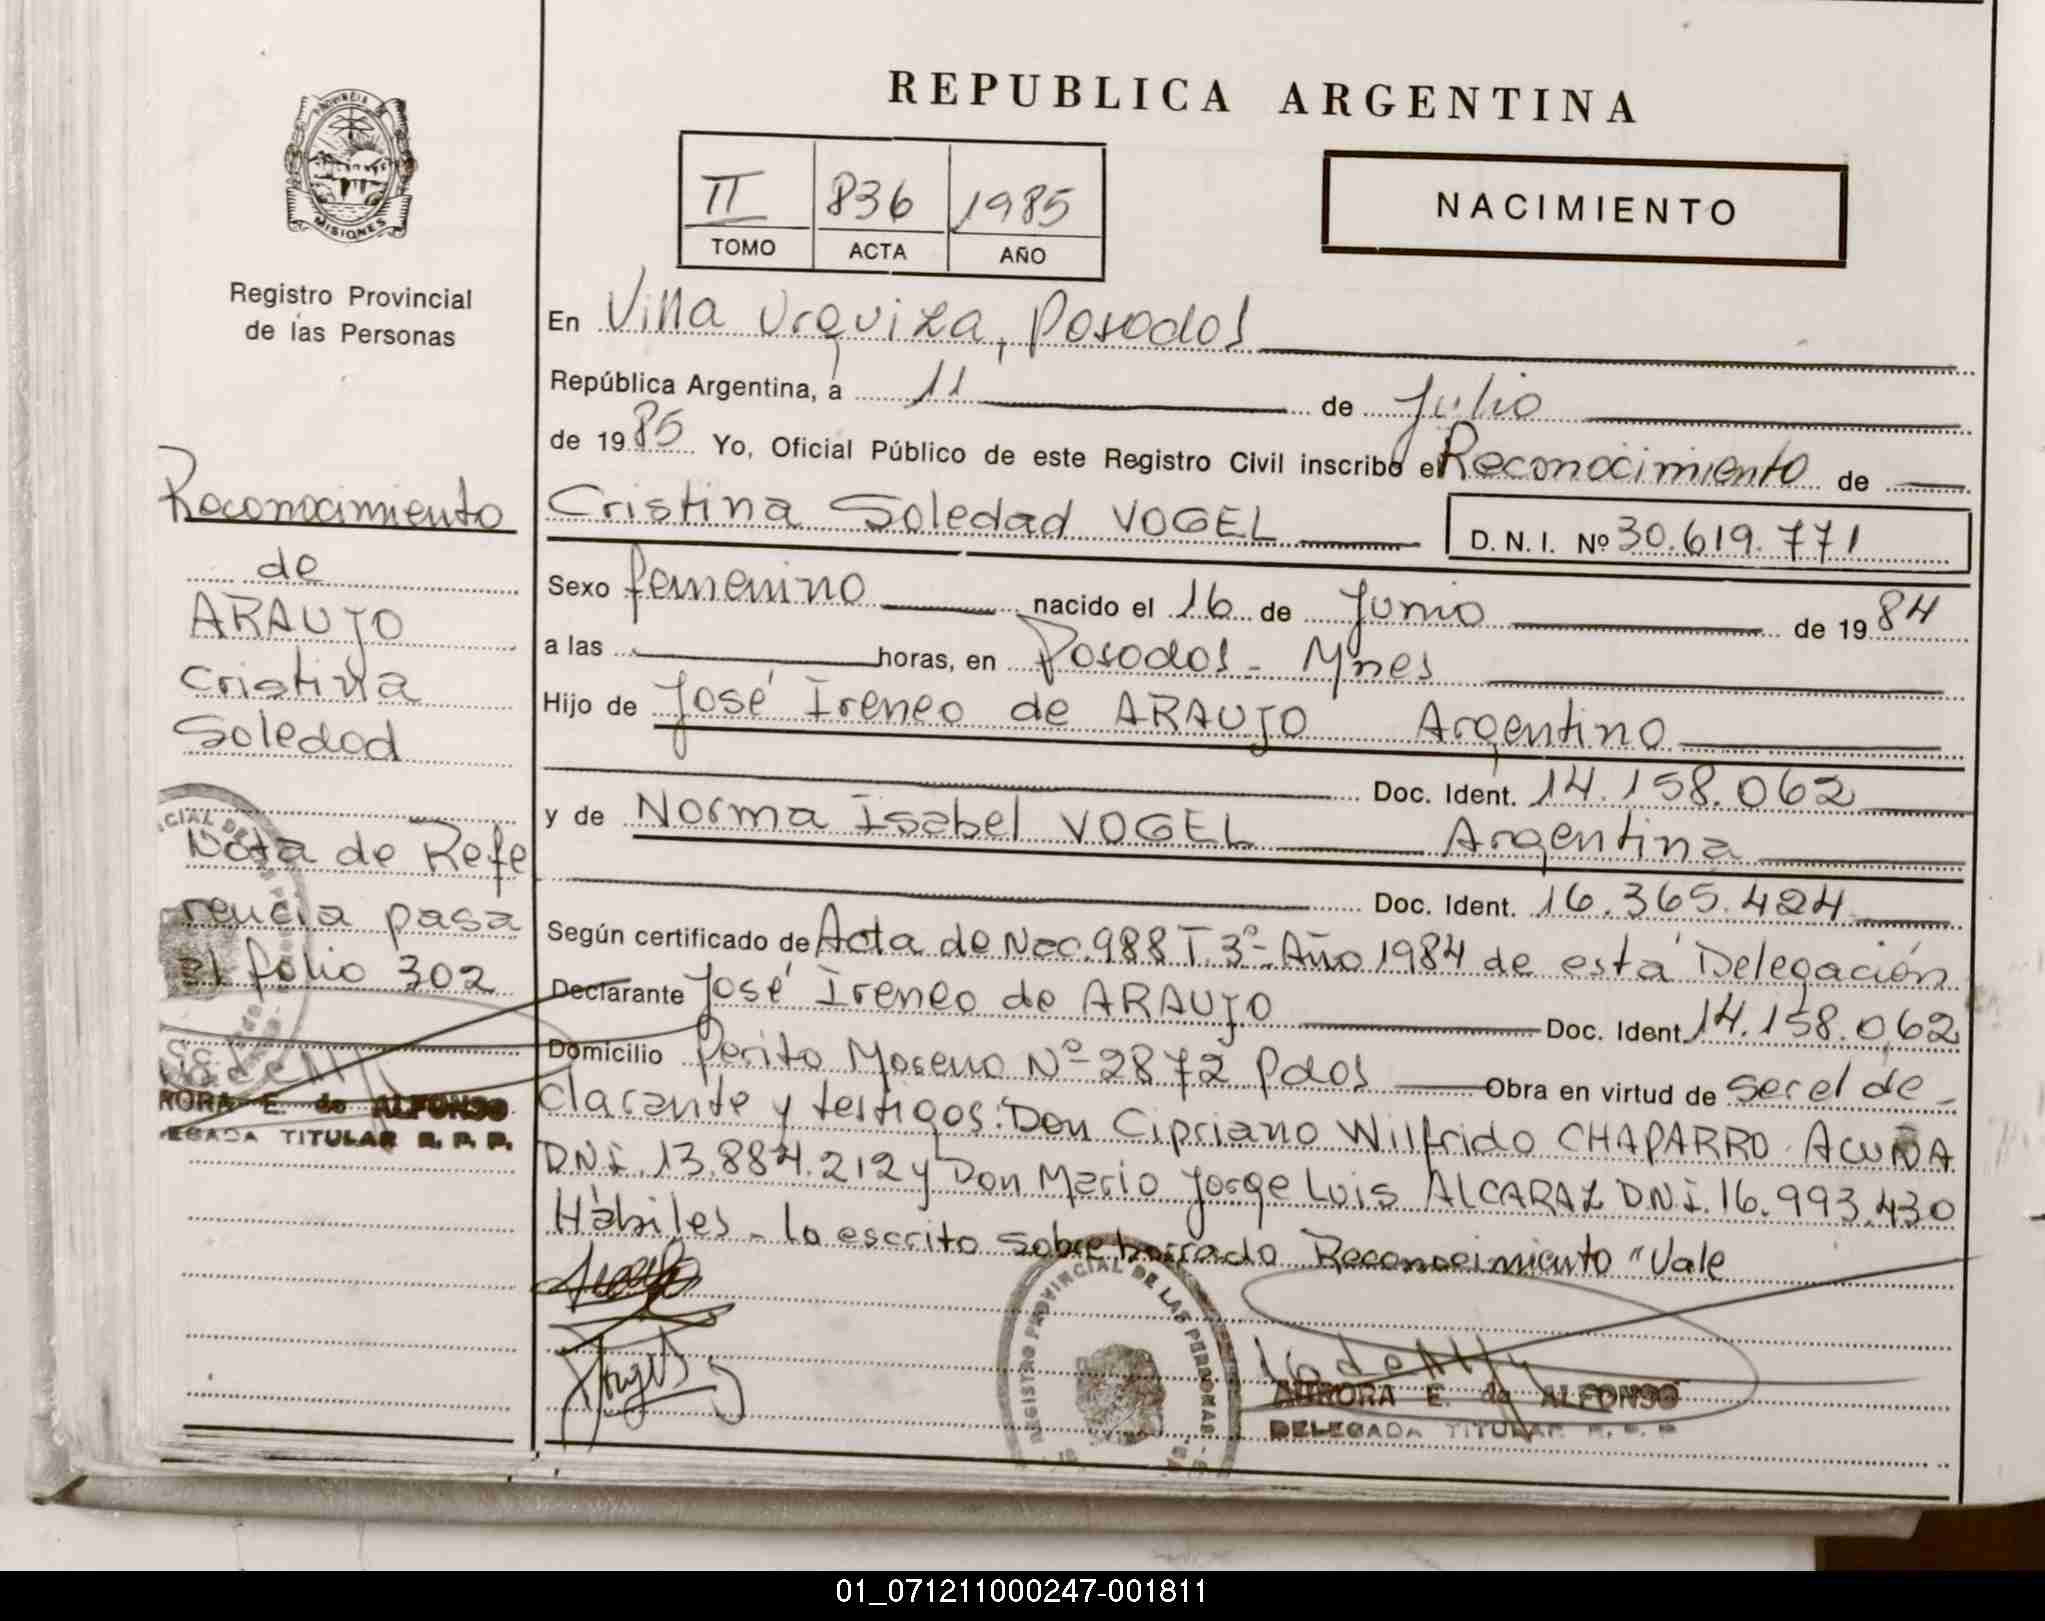 REPUBLICA ARGENTINA
PROVINCIA DE
MISIONES
Registro Provincial
de las Personas
II 836 1985
TOMO ACTA AÑO
NACIMIENTO
En Villa Urquiza, Posadas
República Argentina, a 11 de Julio
de 1985 Yo, Oficial Público de este Registro Civil inscribo el Reconocimiento de
Cristina Soledad VOGEL D.N.I. Nº 30.619.771
Sexo femenino nacido el 16 de Junio de 1984
a las horas, en Posadas - Mnes
Hijo de José Ireneo de ARAUJO Argentino
Doc. Ident. 14.158.062
y de Norma Isabel VOGEL Argentina
Doc. Ident. 16.365.424
Según certificado de Acta de Nac. 988 T. 3º - Año 1984 de esta Delegación
Declarante José Ireneo de ARAUJO Doc. Ident. 14.158.062
Domicilio Perito Moreno Nº 2872 Pdas Obra en virtud de ser el de-
clarante y testigos: Don Cipriano Wilfrido CHAPARRO ACUÑA
DNI. 13.884.212 y Don Mario Jorge Luis ALCARAZ DNI. 16.993.430
Hábiles - lo escrito sobre borrado Reconocimiento "Vale
REGISTRO PROVINCIAL DE LAS PERSONAS
AURORA E. de ALFONSO
DELEGADA TITULAR R. P. P.
Reconocimiento
de
ARAUJO
Cristina
Soledad
Nota de Refe
rencia pasa
al folio 302
CIAL DE
RORA E. de ALFONSO
EGADA TITULAR R. P. P.
01_071211000247-001811